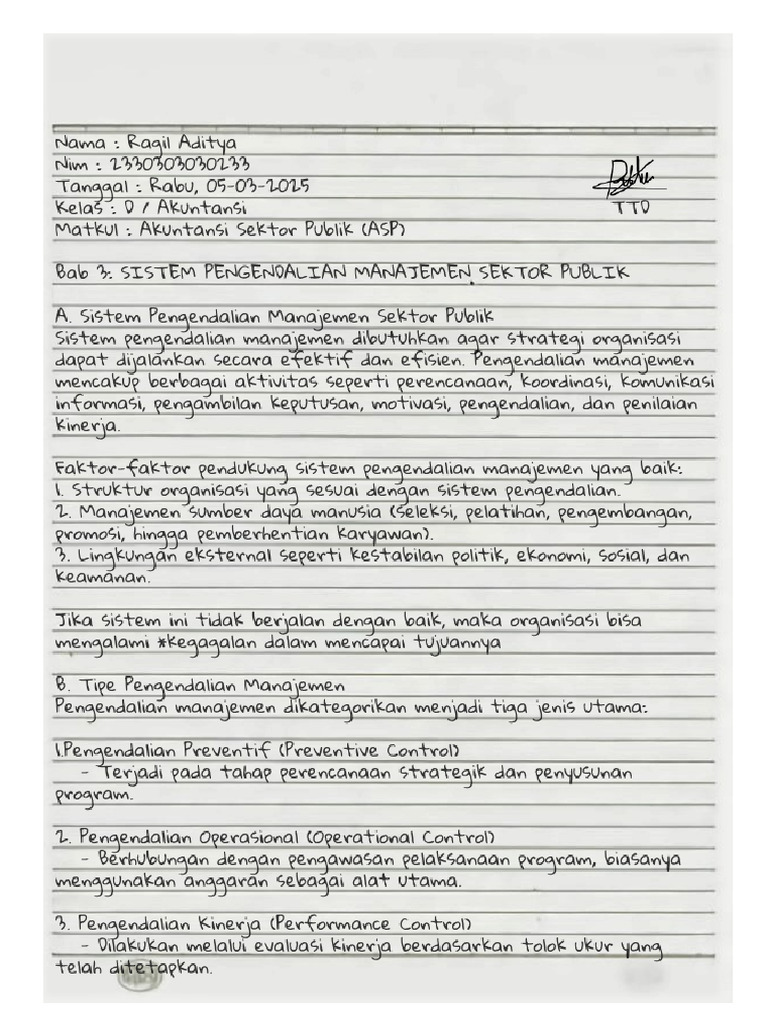 Nama : Ragil Aditya
Nim : 2330303030233
Tanggal : Rabu, 05-03-2025
Kelas : D / Akuntansi
TTD
Matkul : Akuntansi Sektor Publik (ASP)
Bab 3: SISTEM PENGENDALIAN MANAJEMEN SEKTOR PUBLIK
A. Sistem Pengendalian Manajemen Sektor Publik
Sistem pengendalian manajemen dibutuhkan agar strategi organisasi
dapat dijalankan secara efektif dan efisien. Pengendalian manajemen
mencakup berbagai aktivitas seperti perencanaan, koordinasi, komunikasi
informasi, pengambilan keputusan, motivasi, pengendalian, dan penilaian
kinerja.
Faktor-faktor pendukung sistem pengendalian manajemen yang baik:
1. Struktur organisasi yang sesuai dengan sistem pengendalian.
2. Manajemen sumber daya manusia (seleksi, pelatihan, pengembangan,
promosi, hingga pemberhentian karyawan).
3. Lingkungan eksternal seperti kestabilan politik, ekonomi, sosial, dan
keamanan.
Jika sistem ini tidak berjalan dengan baik, maka organisasi bisa
mengalami *kegagalan dalam mencapai tujuannya
B. Tipe Pengendalian Manajemen
Pengendalian manajemen dikategorikan menjadi tiga jenis utama:
1.Pengendalian Preventif (Preventive Control)
- Terjadi pada tahap perencanaan strategik dan penyusunan
program.
2. Pengendalian Operasional (Operational Control)
- Berhubungan dengan pengawasan pelaksanaan program, biasanya
menggunakan anggaran sebagai alat utama.
3. Pengendalian Kinerja (Performance Control)
- Dilakukan melalui evaluasi kinerja berdasarkan tolok ukur yang
telah ditetapkan.